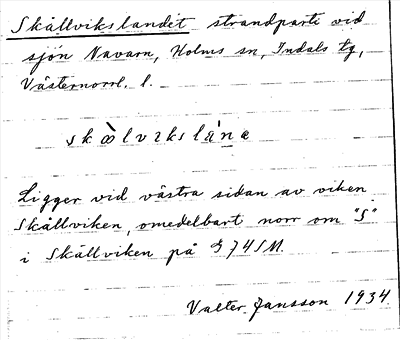 Skällvikslandet strandparti vid
sjön Navarn, Holms sn, Indals tg,
Västernorrl. l.
Ligger vid västra sidan av viken
Skällviken, omedelbart norr om "S"
i Skällviken på
Valter Jansson 1934.